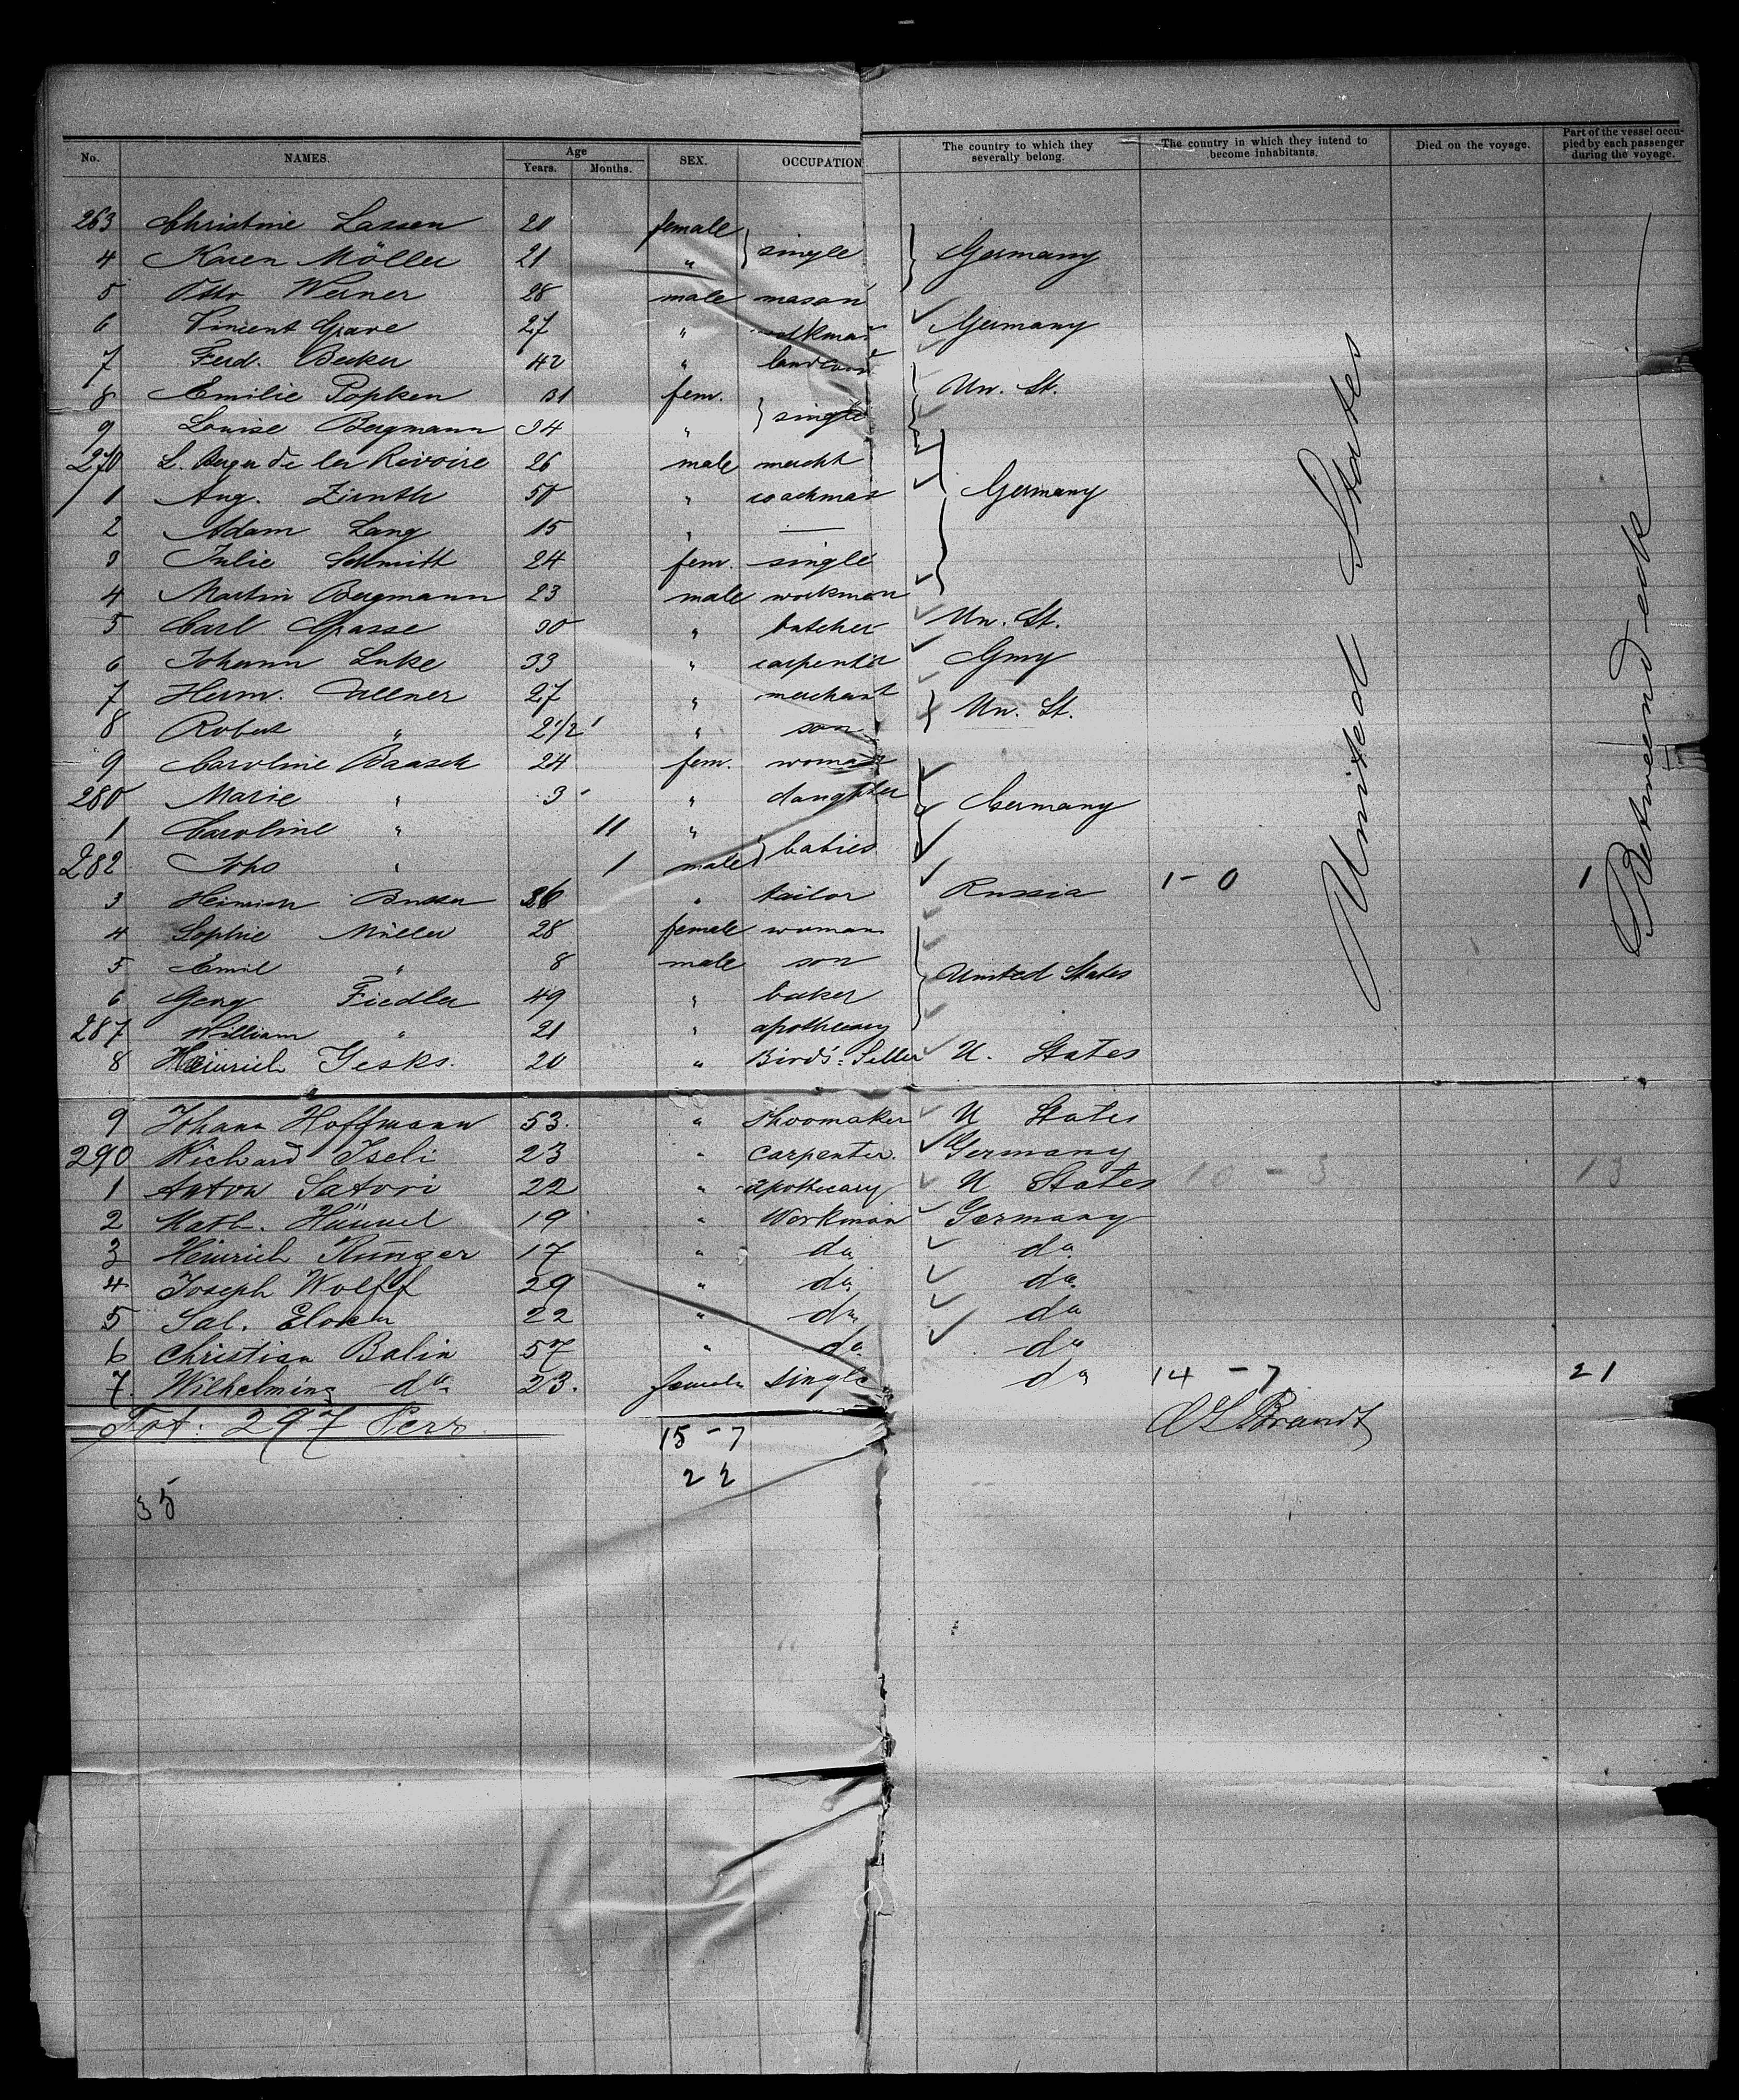 No. NAMES. Age Years. Months. SEX. OCCUPATION The country to which they severally belong. The country in which they intend to become inhabitants. Died on the voyage. Part of the vessel occupied by each passenger during the voyage.
263 Christine Lassen 20 female } single } Germany
4 Karen Möller 21 "
5 Otto Werner 28 male mason
6 Vincent Grave 27 " workman Germany
7 Ferd. Becker 42 "
8 Emilie Popken 31 fem. } single Un. St.
9 Louise Bergmann 34 "
270 L. Berger de la Rivoire 26 male mercht
1 Aug. Zirnth 50 " coachman Germany
2 Adam Lang 15 " —
3 Julie Schmitt 24 fem. single
4 Martin Bergmann 23 male workman
5 Carl Grasse 30 " butcher Un. St.
6 Johann Luke 33 " carpenter Gmy
7 Herm. 27 " merchant } Un. St.
8 Robert " 2 1/2 " son
9 Caroline Baasch 24 fem. woman
280 Marie " 3 " daughter Germany
1 Caroline " 11 " } babies
282 Joho " 1 male
3 Heinrich 26 " tailor Russia 1 - 0 1
4 Sophie Müller 28 female woman
5 Emil " 8 male son United States
6 Georg Fiedler 49 " baker
287 William " 21 " apothecary
8 Heinrich Jesks. 20 " Birds-Seller U. States
United States
Between deck
9 Johann Hoffmann 53. " Shoomaker U States
290 Richard Iseli 23 " Carpenter. Germany
1 Anton Satori 22 " apothecary U States 10 - 3 13
2 Math. Hümmel 19 " Workman Germany
3 Heinrich Runger 17 " do do
4 Joseph Wolff 29 " do do
5 Sal. 22 " do do
6 Christian Balin 57 " do do
7. Wilhelmina do 23. female single do 14 - 7 21
Tot: 297 Pers. Brandt
15 - 7
22
35